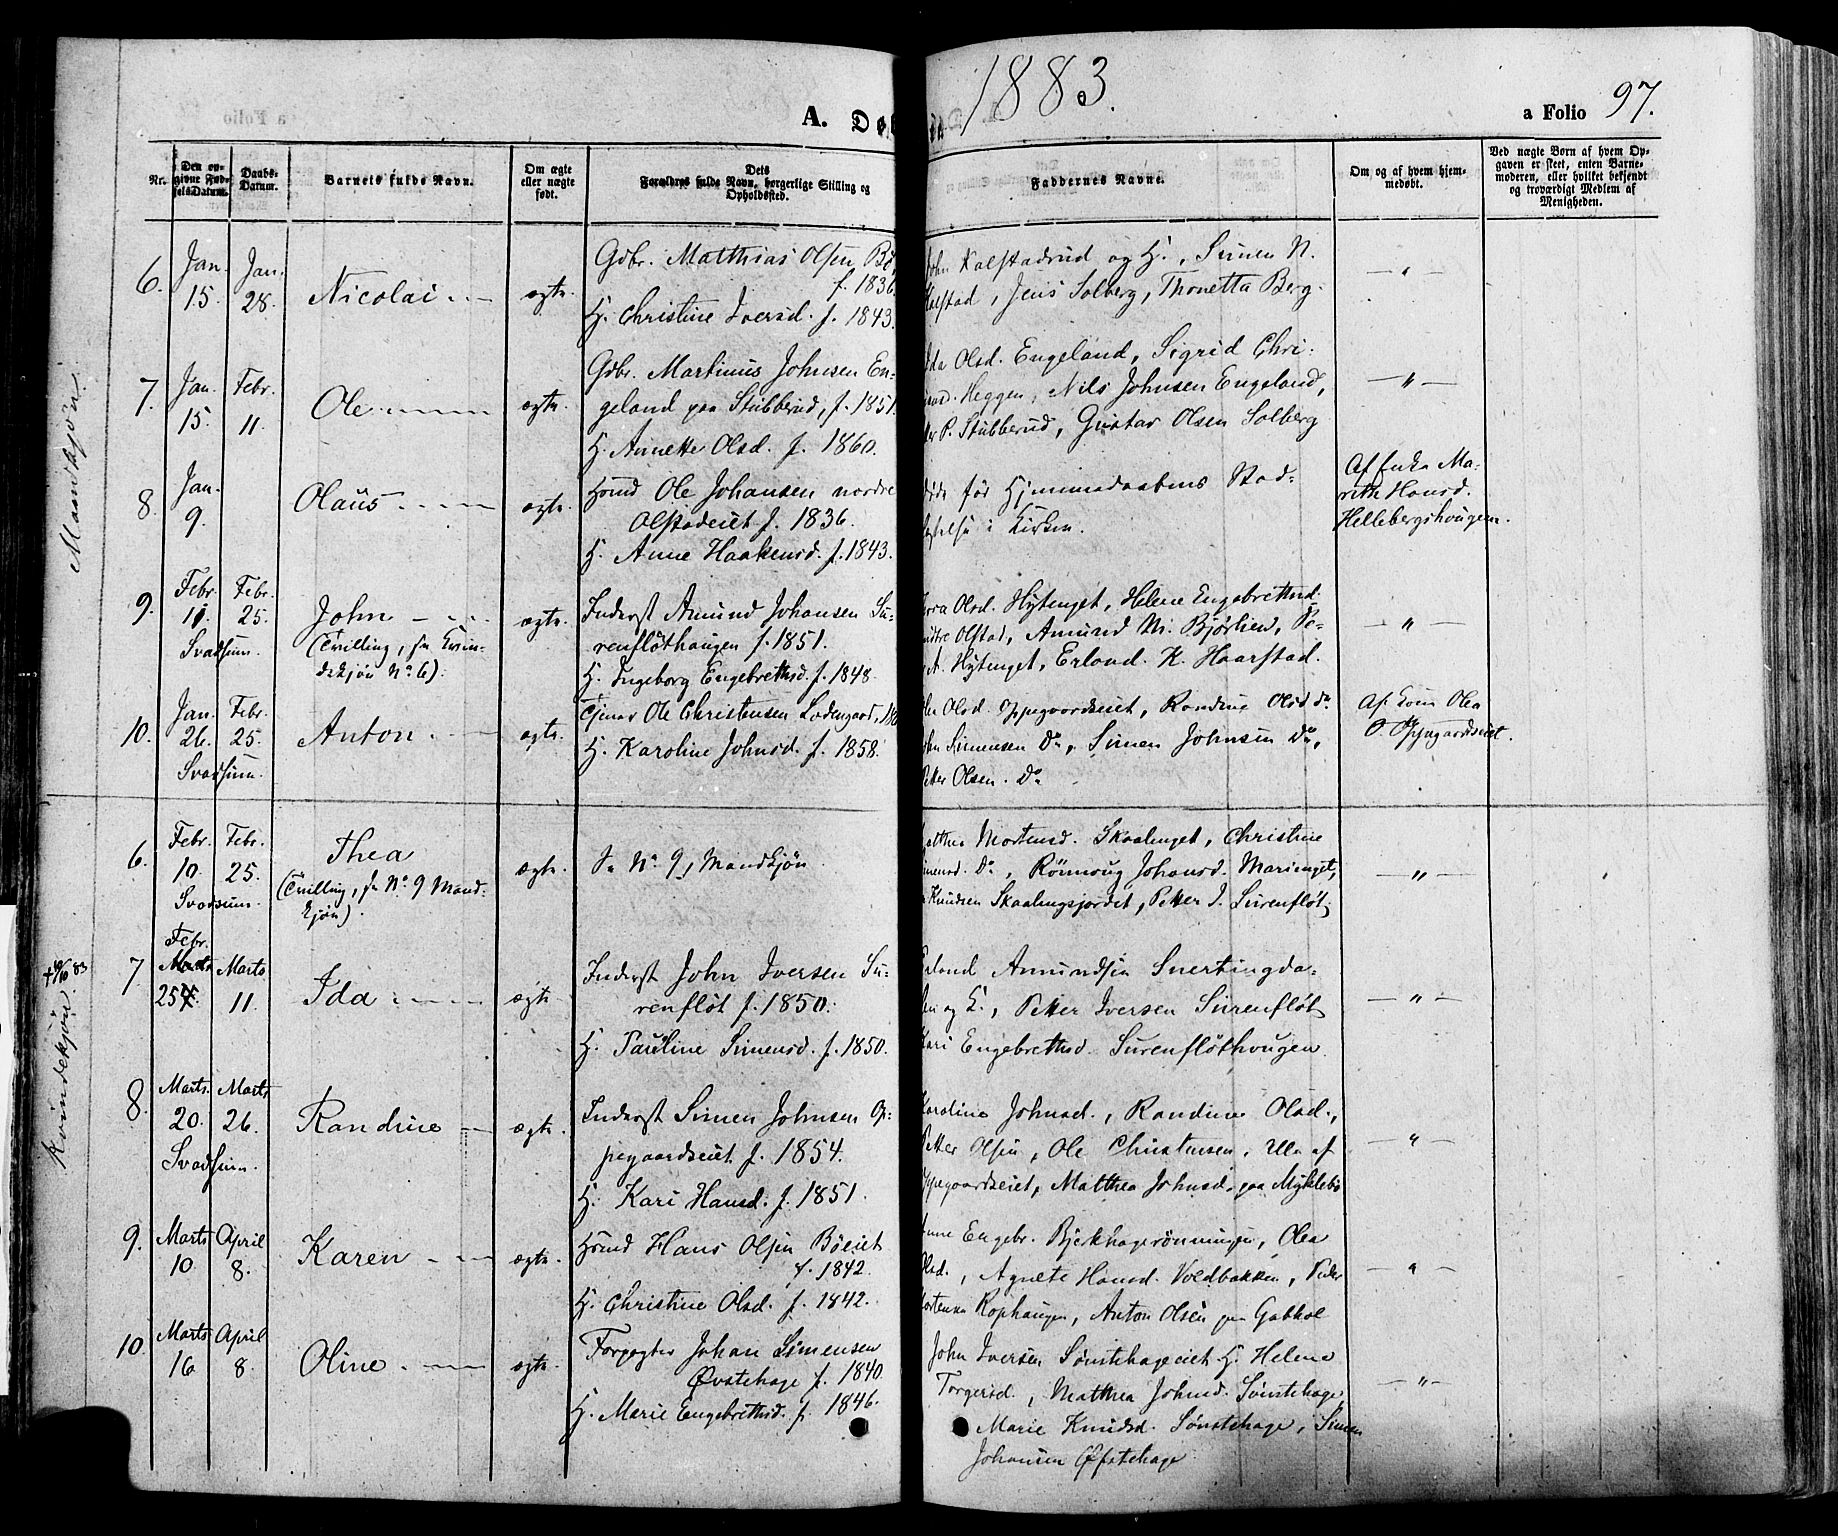 1883.
A. Døbte
a Folio 97.
Nr.
Den opgivne FødselsDatum.
Daabs-Datum.
Barnets fulde Navn.
Om ægte eller uægte født.
Dets Forældres fulde Navn, borgerlige Stilling og Opholdssted.
Faddernes Navne.
Om og af hvem hjemmedøbt.
Ved uægte Born af hvem Opgaven er skeet, enten Barnemoderen, eller hvilket bekjendt og troværdigt Medlem af Menigheden.
Mandkjøn.
6. Jan. 15. Jan. 28. Nicolai ægte.
Gdbr. Matthias Olsen
f. 1836
H. Christine Iversd. f. 1843.
Kalstadrud og H., Simen N.
Jens Solberg, Thonetta Berg.
7. Jan. 15. Febr. 11. Ole ægte.
Gdbr. Martinus Johnsen En-
geland paa Stubberud, f. 1851.
H. Annette Olsd. f. 1860.
Olsd. Engeland, Sigrid Chri-
Heggen, Nils Johnsen Engeland,
P. Stubberud, Gustav Olsen Solberg
8. Jan. 9. Olaus ægte.
Hsmd Ole Johansen nordre
Olstadeiet f. 1836.
H. Anne Haakensd. f. 1843.
før Hjemmedaabens Stad-
i Kirken.
Af Enke Ma-
rith Hansd.
Hellebergshougen.
9. Febr. 11. Febr. 25. John ægte.
Svadsum.
(Tvilling, se Kvin-
dekjøn No 6).
Inderst Amund Johansen Su-
renflöthaugen f. 1851.
H. Ingeborg Engebrethsd. f. 1848.
Olsd. Hytenget, Helene Engebrethsd.
Olstad, Amund M. Bjørlien, Pe-
A. Hytenget, Erland K. Haarstad.
10. Jan. 26. Febr. 25. Anton ægte.
Svadsum.
Tjener Ole Christensen Lodengaard,
H. Karoline Johnsd. f. 1858.
Olsd. Oppegaardseiet, Randine Olsd do
Simensen Do, Simen Johnsen Do,
Petter Olsen. Do
Af Kone Olea
O. Oppegaardseiet.
Kvindekjøn.
6. Febr. 10. Febr. 25. Thea ægte.
Svadsum.
(Tvilling, se No 9 Mand-
kjøn).
Se No 9, Mandkjøn
Mortensd. Skaalenget, Christine
Do, Rönnoug Johansd. Marienget,
Knudsen Skaalingsjordet, Petter I. Surenflöt
7. Febr. 25. Marts 11. Ida ægte.
Inderst John Iversen Su-
renflöt f. 1850.
H. Pauline Simensd. f. 1850.
Erland Amundsen Snertingda-
len og K., Petter Iversen Surenflöt
Kari Engebrethsd. Surenflöthougen.
8. Marts 20. Marts 26. Randine ægte.
Svadsum.
Inderst Simen Johnsen Op-
pegaardseiet f. 1854.
H. Kari Hansd. f. 1851.
Karoline Johnsd., Randine Olsd.,
Petter Olsen, Ole Christensen,
Oppegaardseiet, Matthea Johnsd. paa Myklebø
9. Marts 10 April 8. Karen ægte.
Hsmd Hans Olsen Böeiet
f. 1842.
H. Christine Olsd. f. 1842.
Engebr. Bjerkhagerönningen, Olea
Olsd., Agnete Hansd. Voldbakken, Peder
Rophaugen, Anton Olsen paa Gabhol
10. Marts 16 April 8. Oline ægte.
Forpagter Johan Simensen
Øvstehage f. 1840.
H. Marie Engebrethsd. f. 1846.
John Iversen Sönstehageeiet H. Helene
Torgersd., Matthea Johnsd. Sönstehage
Marie Knudsd. Sönstehage, Simen
Johansen Øfstehage